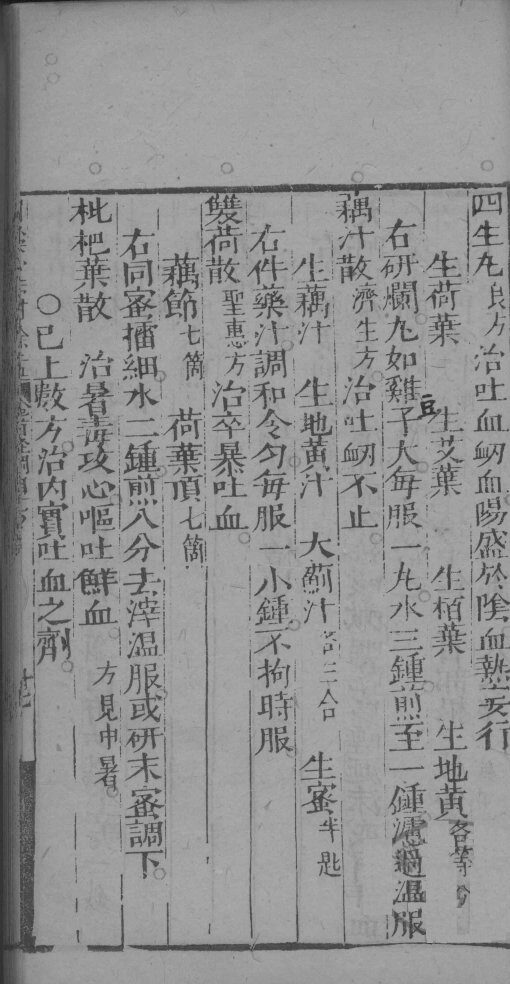 四生丸良方治吐血衂血陽盛於陰血熱妄行
生荷葉 生艾葉 生栢葉 生地黄各等分
右研爛丸如雞子大每服一丸水三鍾煎至一鍾濾過温服
豆
藕汁散濟生方治吐衂不止
生藕汁 生地黄汁 大薊汁各三合 生蜜半匙
右件藥汁調和令匀每服一小鍾不拘時服
雙荷散聖惠方治卒暴吐血
藕節七箇 荷葉頂七箇
右同蜜擂細水二鍾煎八分去滓温服或研末蜜調下
枇杷葉散 治暑毒攻心嘔吐鮮血 方見中暑
〇已上數方治内實吐血之劑